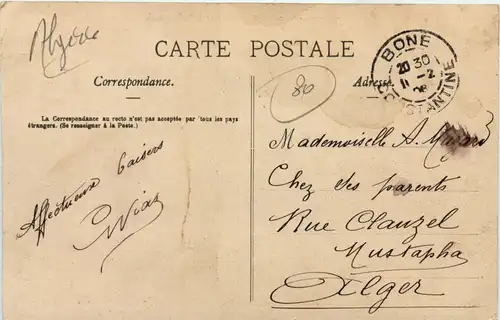 Algérie
CARTE POSTALE
Correspondance.
Adresse
80
BONE
20 30
11 - 2
08
CONSTANTINE
La Correspondance au recto n'est pas acceptée par tous les pays
étrangers. (Se renseigner à la Poste.)
Affectueux baisers
Mademoiselle A.
Chez ses parents
Rue Clauzel
Mustapha
Alger